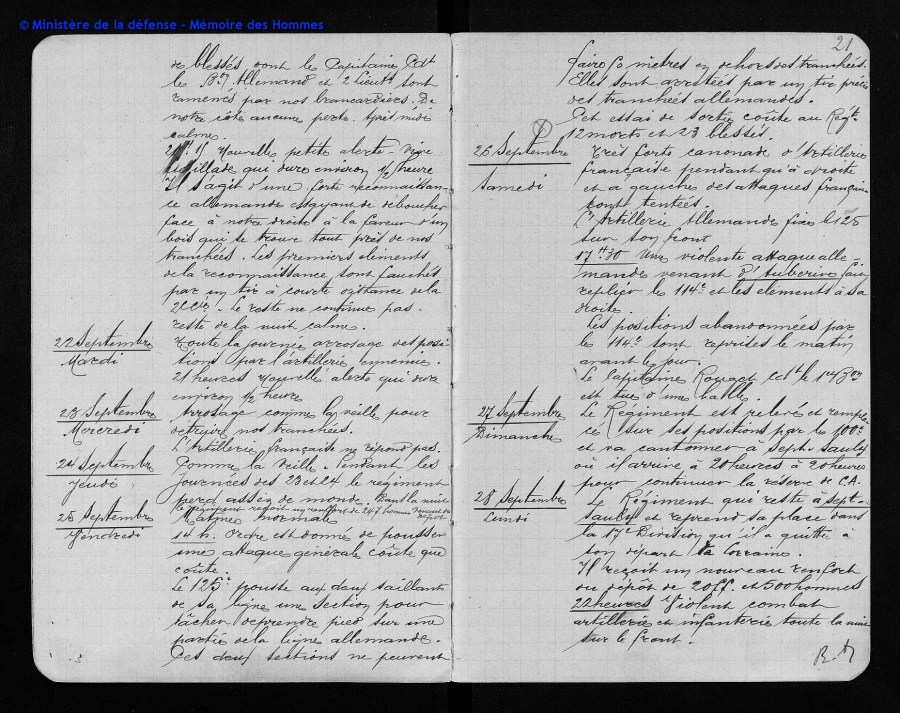 © Ministère de la défense - Mémoire des Hommes
de blessés dont le Capitaine Cdt
le Bon Allemand et 2 Lieutts sont
ramenés par nos brancardiers. De
notre côté aucune perte. Après midi
calme.
Nouvelle petite alerte. Vive
fusillade qui dure environ 1/2 heure
Il s'agit d'une forte reconnaissan-
ce allemande essayant de déboucher
face à notre droite à la faveur d'un
bois qui se trouve tout près de nos
tranchées. Les premiers éléments
de la reconnaissance sont fauchés
par un tir à courte distance de la
2e Cie. Le reste ne continue pas.
reste de la nuit calme.
22 Septembre
Mardi
Toute la journée arrosage des posi-
tions par l'artillerie ennemie.
21 heures Nouvelle alerte qui dure
environ 1/2 heure
23 Septembre
Mercredi
Arrosage comme la veille pour
détruire nos tranchées.
L'Artillerie française ne répond pas.
24 Septembre
Jeudi
Comme la veille. Pendant les
journées des 23 et 24 le régiment
perd assez de monde. Dans la nuit
le régiment reçoit un renfort de 247 hommes venant du
dépôt
25 Septembre
Vendredi
Matinée normale
14 h. Ordre est donné de pousser
une attaque générale coûte que
coûte.
Le 125e pousse aux deux saillants
de sa ligne une section pour
tâcher de prendre pied sur une
partie de la ligne allemande.
Ces deux sections ne peuvent
21
faire 50 mètres en dehors des tranchées.
Elles sont arrêtées par un tir précis
des tranchées allemandes.
Cet essai de sortie coûte au Régt
12 morts et 23 blessés.
26 Septembre
Samedi
Très forte canonade d'Artillerie
française pendant qu'à droite
et à gauche des attaques françaises
sont tentées.
L'Artillerie Allemande fixe le 125
sur son front
17h30 Une violente attaque alle-
mande venant d'Auberive fait
replier le 114e et les éléments à sa
droite.
Les positions abandonnées par
le 114e sont reprises le matin
avant le jour.
Le Capitaine Rouget Cdt le 1er Bon
est tué d'une balle.
27 Septembre
Dimanche
Le Régiment est relevé et rempla-
cé sur ses positions par le 100e
et va cantonner à Sept-Saulx
où il arrive à 20 heures à 20 heures
pour continuer la réserve de CA.
28 Septembre
Lundi
Le Régiment qui reste à Sept-
Saulx et reprend sa place dans
la 17e Division qu'il a quittée à
son départ la Lorraine.
Il reçoit un nouveau renfort
du dépôt de 2 off. et 500 hommes
22 heures Violent combat
artillerie et infanterie toute la nuit
sur le front.